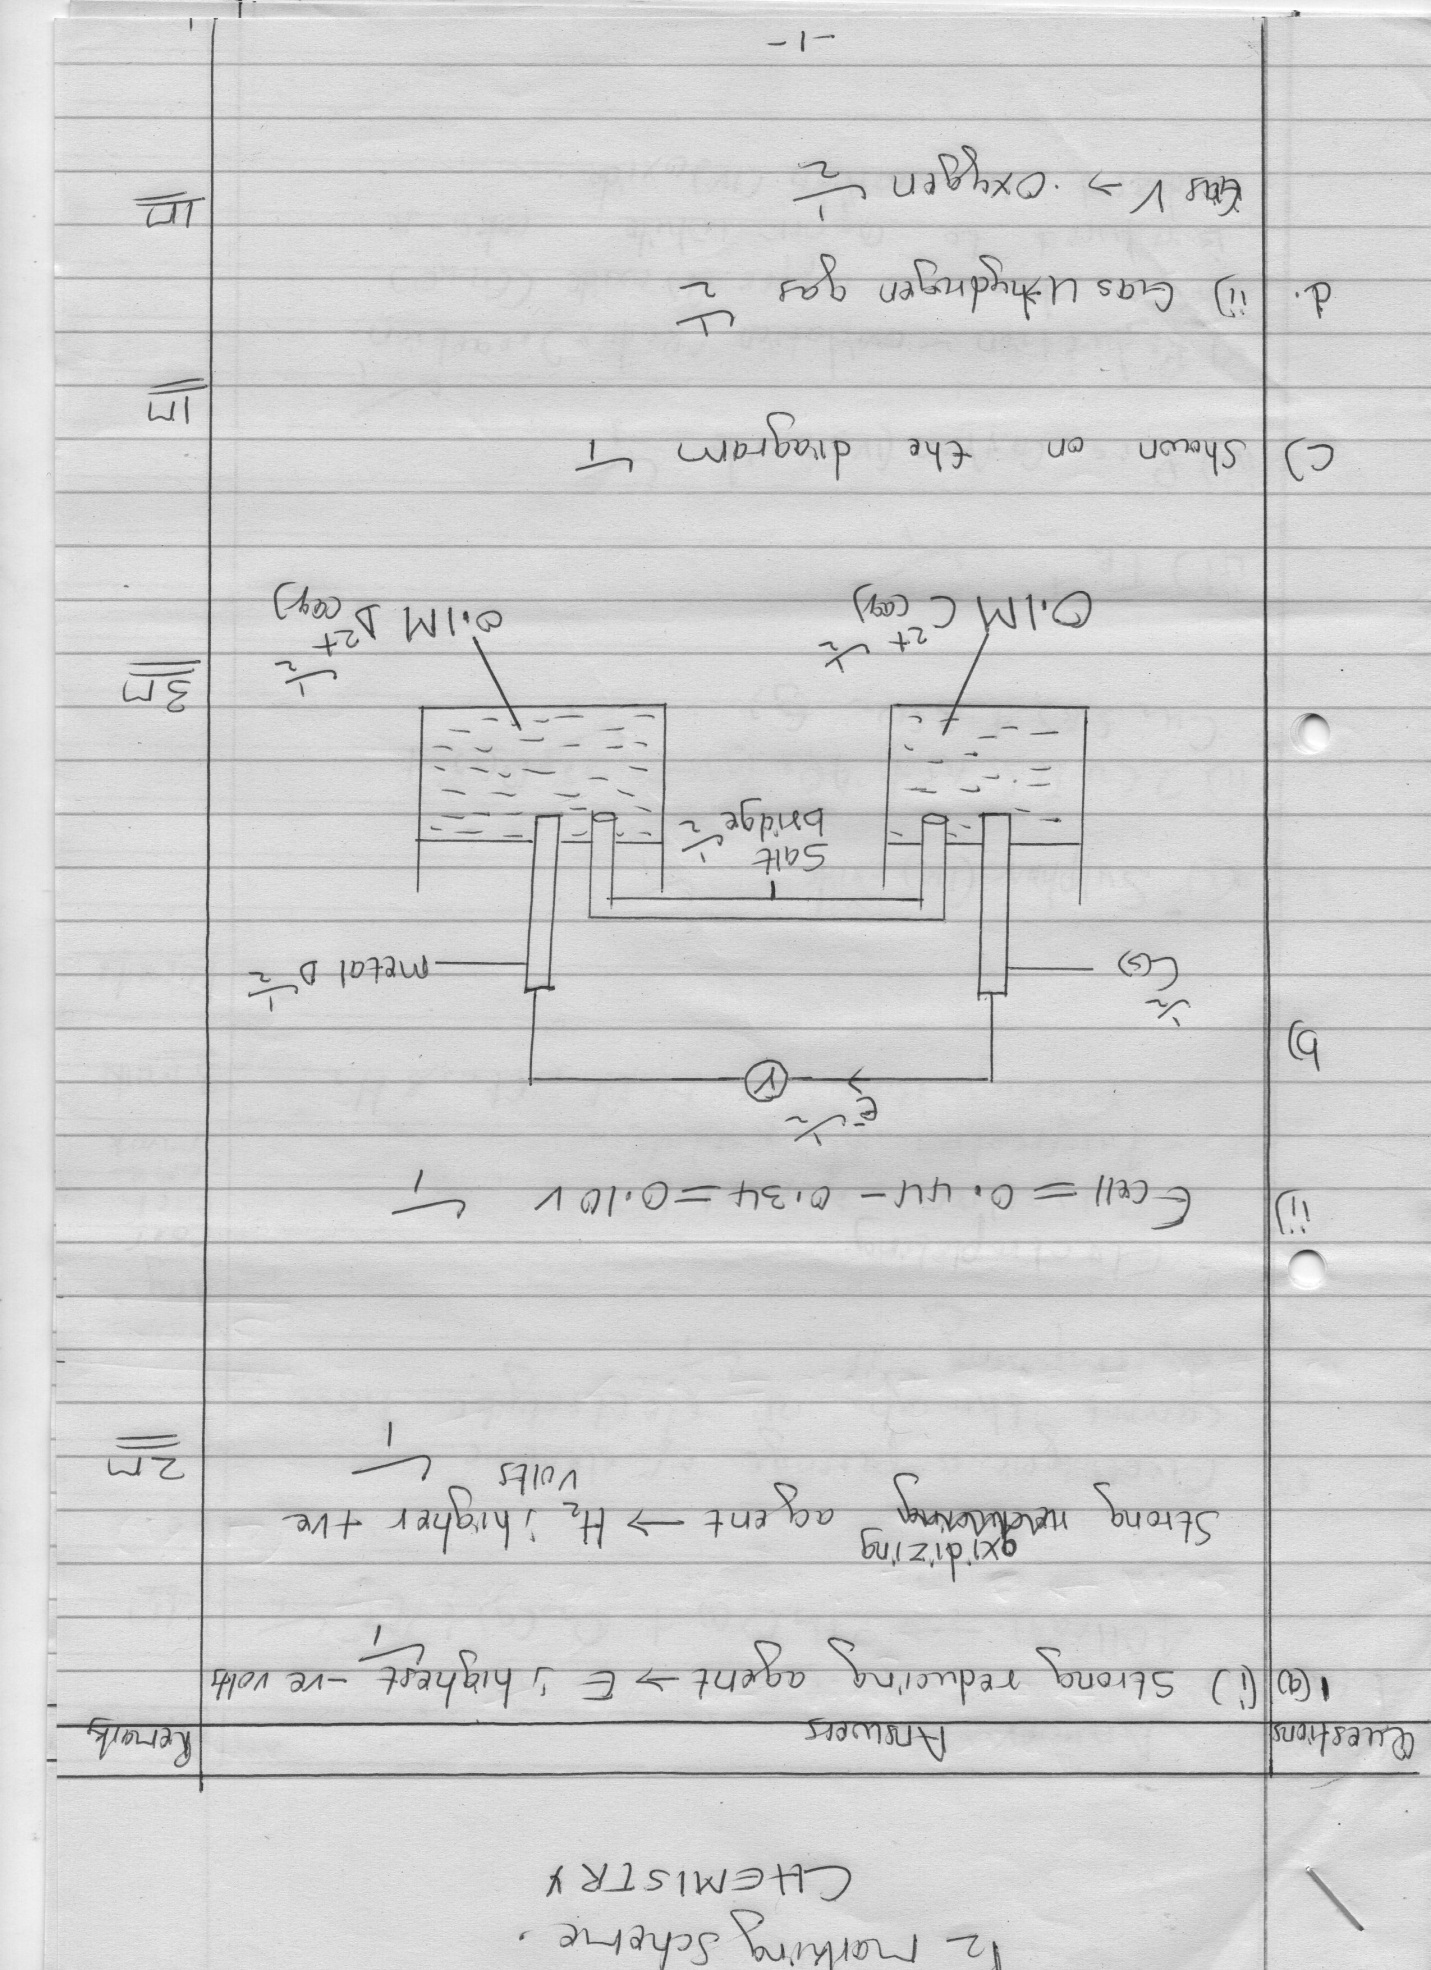 P2 marking scheme.
CHEMISTRY
Questions Answers Remarks
1(a) (i) Strong reducing agent → E ; highest -ve volts
1
oxidizing
Strong agent → H2 ; higher +ve
volts
1
2m
ii) Ecell = 0.44 - 0.34 = 0.10V 1
e- ½
V
b)
½
C(s)
metal D ½
Salt
bridge ½
3m
0.1M C2+(aq) ½
0.1M D2+(aq) ½
c) Shown on the diagram 1
1m
d. ii) Gas U → hydrogen gas ½
Gas V → oxygen ½
1m
-1-